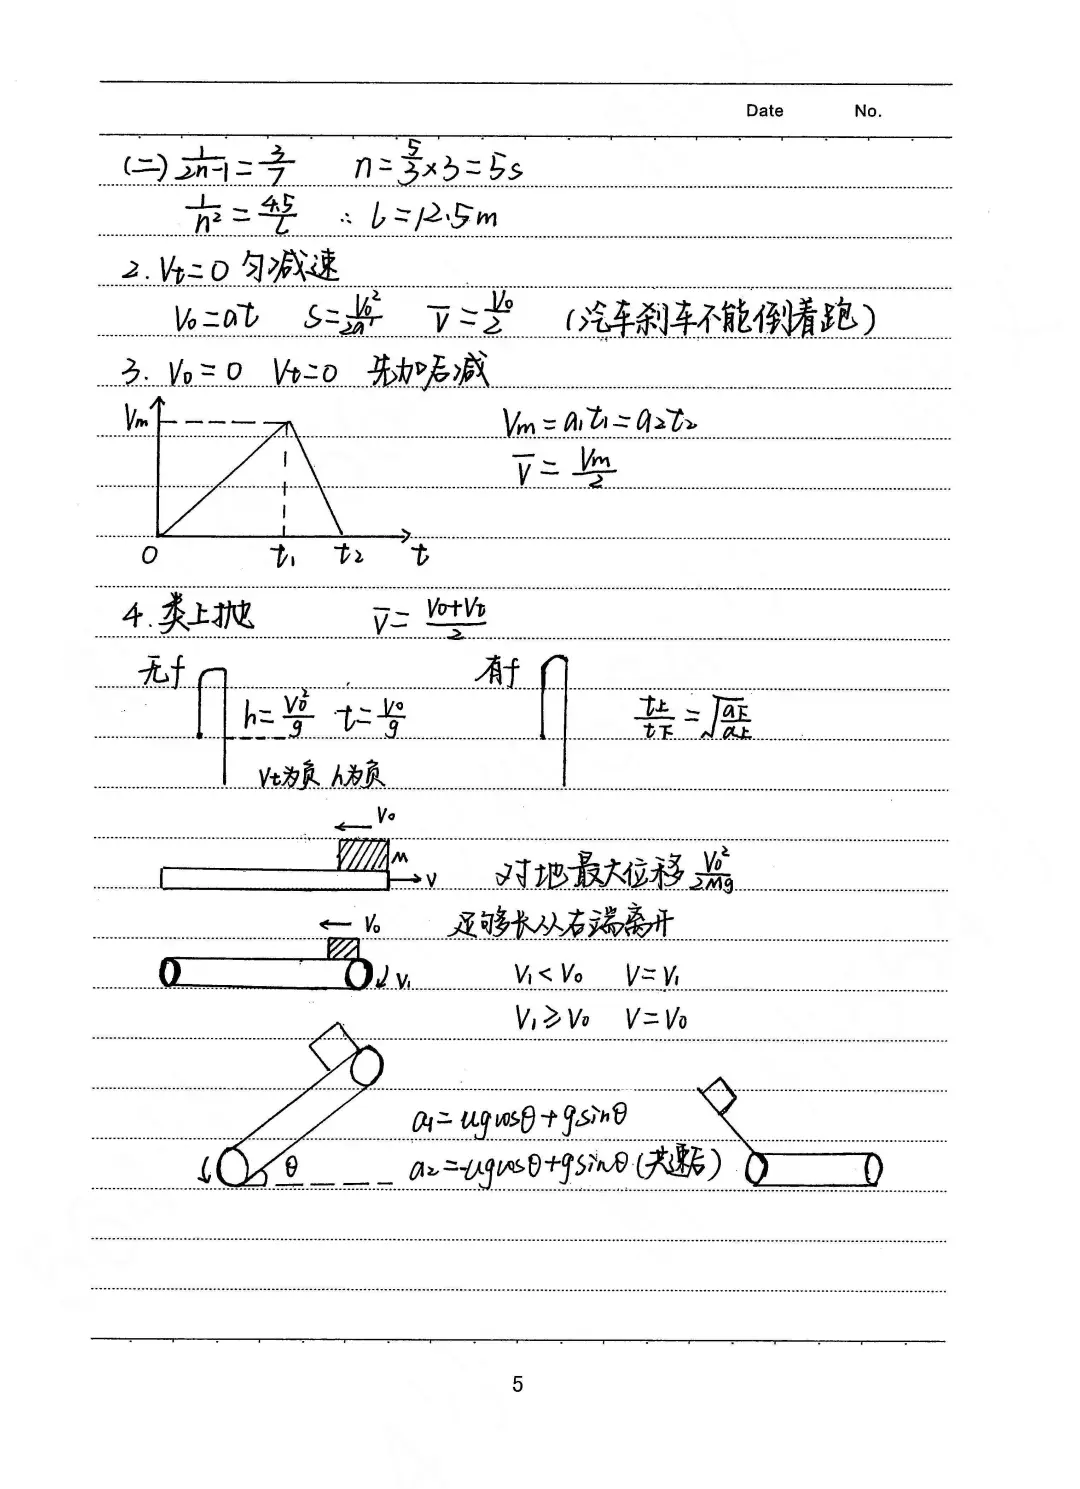 Date No.
(二) 1/(2n-1) = 3/7 n = 5/3 × 3 = 5s
1/n² = 4.5/L ∴ L = 12.5m
2. Vt=0 匀减速
V₀=at S=V₀²/2a V̄=V₀/2 (汽车刹车不能倒着跑)
3. V₀=0 Vt=0 先加后减
Vm Vm=a₁t₁=a₂t₂
V̄=Vm/2
0 t₁ t₂ t
4. 类上抛 V̄=(V₀+Vt)/2
无f 有f
h=V₀²/g t=V₀/g t上/t下=√(a下/a上)
Vt为负 h为负
V₀
M V 对地最大位移 V₀²/2Mg
V₀ 足够长从右端离开
V₁ V₁<V₀ V=V₁
V₁≥V₀ V=V₀
a₁=ugcosθ+gsinθ
θ a₂=-ugcosθ+gsinθ(共速后)
5